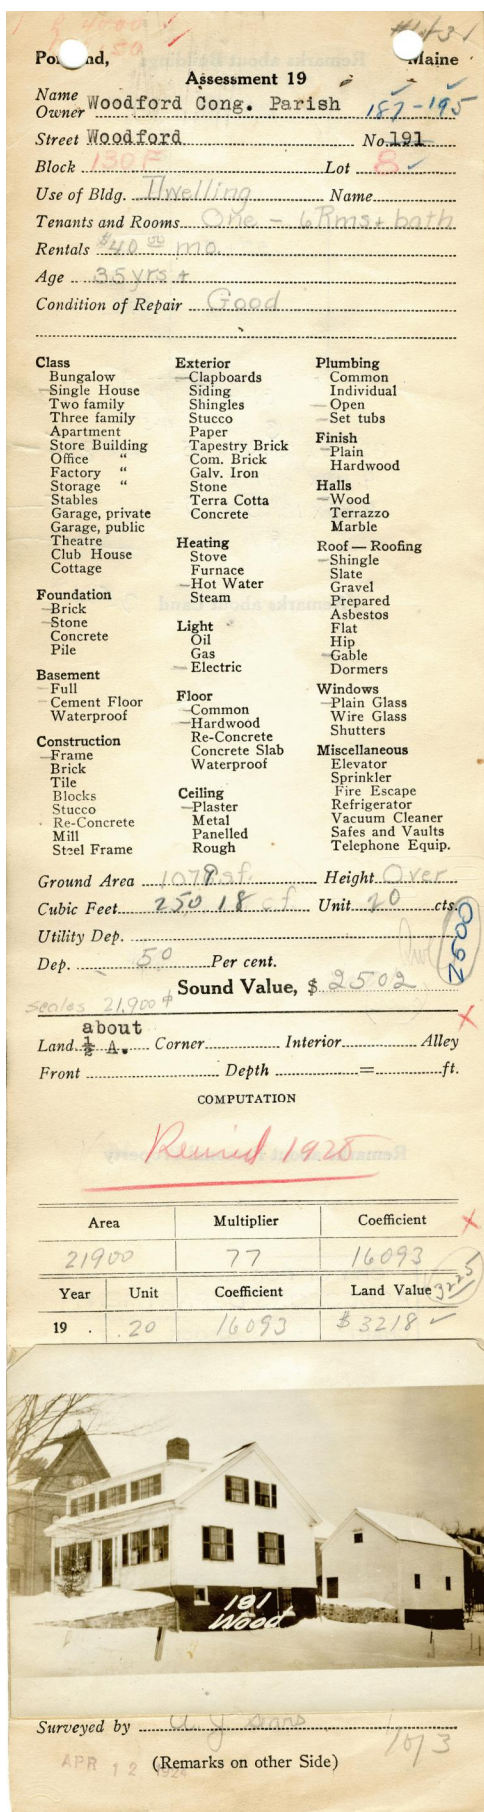 Maine
Assessment 19
Name
Owner Woodford Cong. Parish 187-195
Street Woodford No. 191
Block 130 F Lot 8
Use of Bldg. Dwelling Name
Tenants and Rooms One - 6 Rms + bath
Rentals $40 00 mo.
Age 35 yrs +
Condition of Repair Good
Class
Bungalow
Single House
Two family
Three family
Apartment
Store Building
Office "
Factory "
Storage "
Stables
Garage, private
Garage, public
Theatre
Club House
Cottage
Foundation
Brick
Stone
Concrete
Pile
Basement
Full
Cement Floor
Waterproof
Construction
Frame
Brick
Tile
Blocks
Stucco
Re-Concrete
Mill
Steel Frame
Exterior
Clapboards
Siding
Shingles
Stucco
Paper
Tapestry Brick
Com. Brick
Galv. Iron
Stone
Terra Cotta
Concrete
Heating
Stove
Furnace
Hot Water
Steam
Light
Oil
Gas
Electric
Floor
Common
Hardwood
Re-Concrete
Concrete Slab
Waterproof
Ceiling
Plaster
Metal
Panelled
Rough
Plumbing
Common
Individual
Open
Set tubs
Finish
Plain
Hardwood
Halls
Wood
Terrazzo
Marble
Roof — Roofing
Shingle
Slate
Gravel
Prepared
Asbestos
Flat
Hip
Gable
Dormers
Windows
Plain Glass
Wire Glass
Shutters
Miscellaneous
Elevator
Sprinkler
Fire Escape
Refrigerator
Vacuum Cleaner
Safes and Vaults
Telephone Equip.
Ground Area 1079 sf. Height Over
Cubic Feet 25018 cf. Unit 20 cts.
Utility Dep.
2500
Dep. 50 Per cent.
Sound Value, $ 2502
scales 21,900
about
Land ½ A. Corner Interior Alley
Front Depth = ft.
COMPUTATION
1925
Area Multiplier Coefficient
21900 77 16093
3225
Year Unit Coefficient Land Value
19 . .20 16093 $3218
191
Wood
Surveyed by
APR 12 192
(Remarks on other Side)